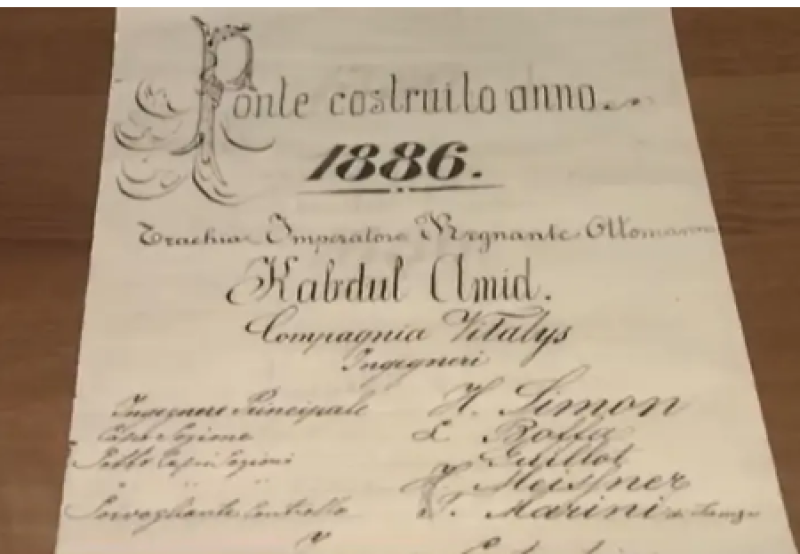 Ponte costruito anno
1886.
Trachia Imperatore Regnante Ottomanno
Kabdul Amid.
Compagnia Vitalys
Ingegneri
Ingegnere Principale H. Simon
Capo Sezione L. Boffa
Sotto Capi Sezioni Guillot
" " " H. Meissner
Sorvegliante Controllo F. Marini